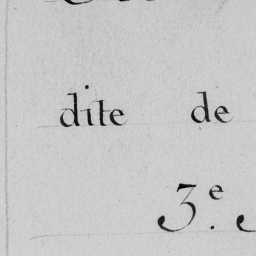 dite de
3.e